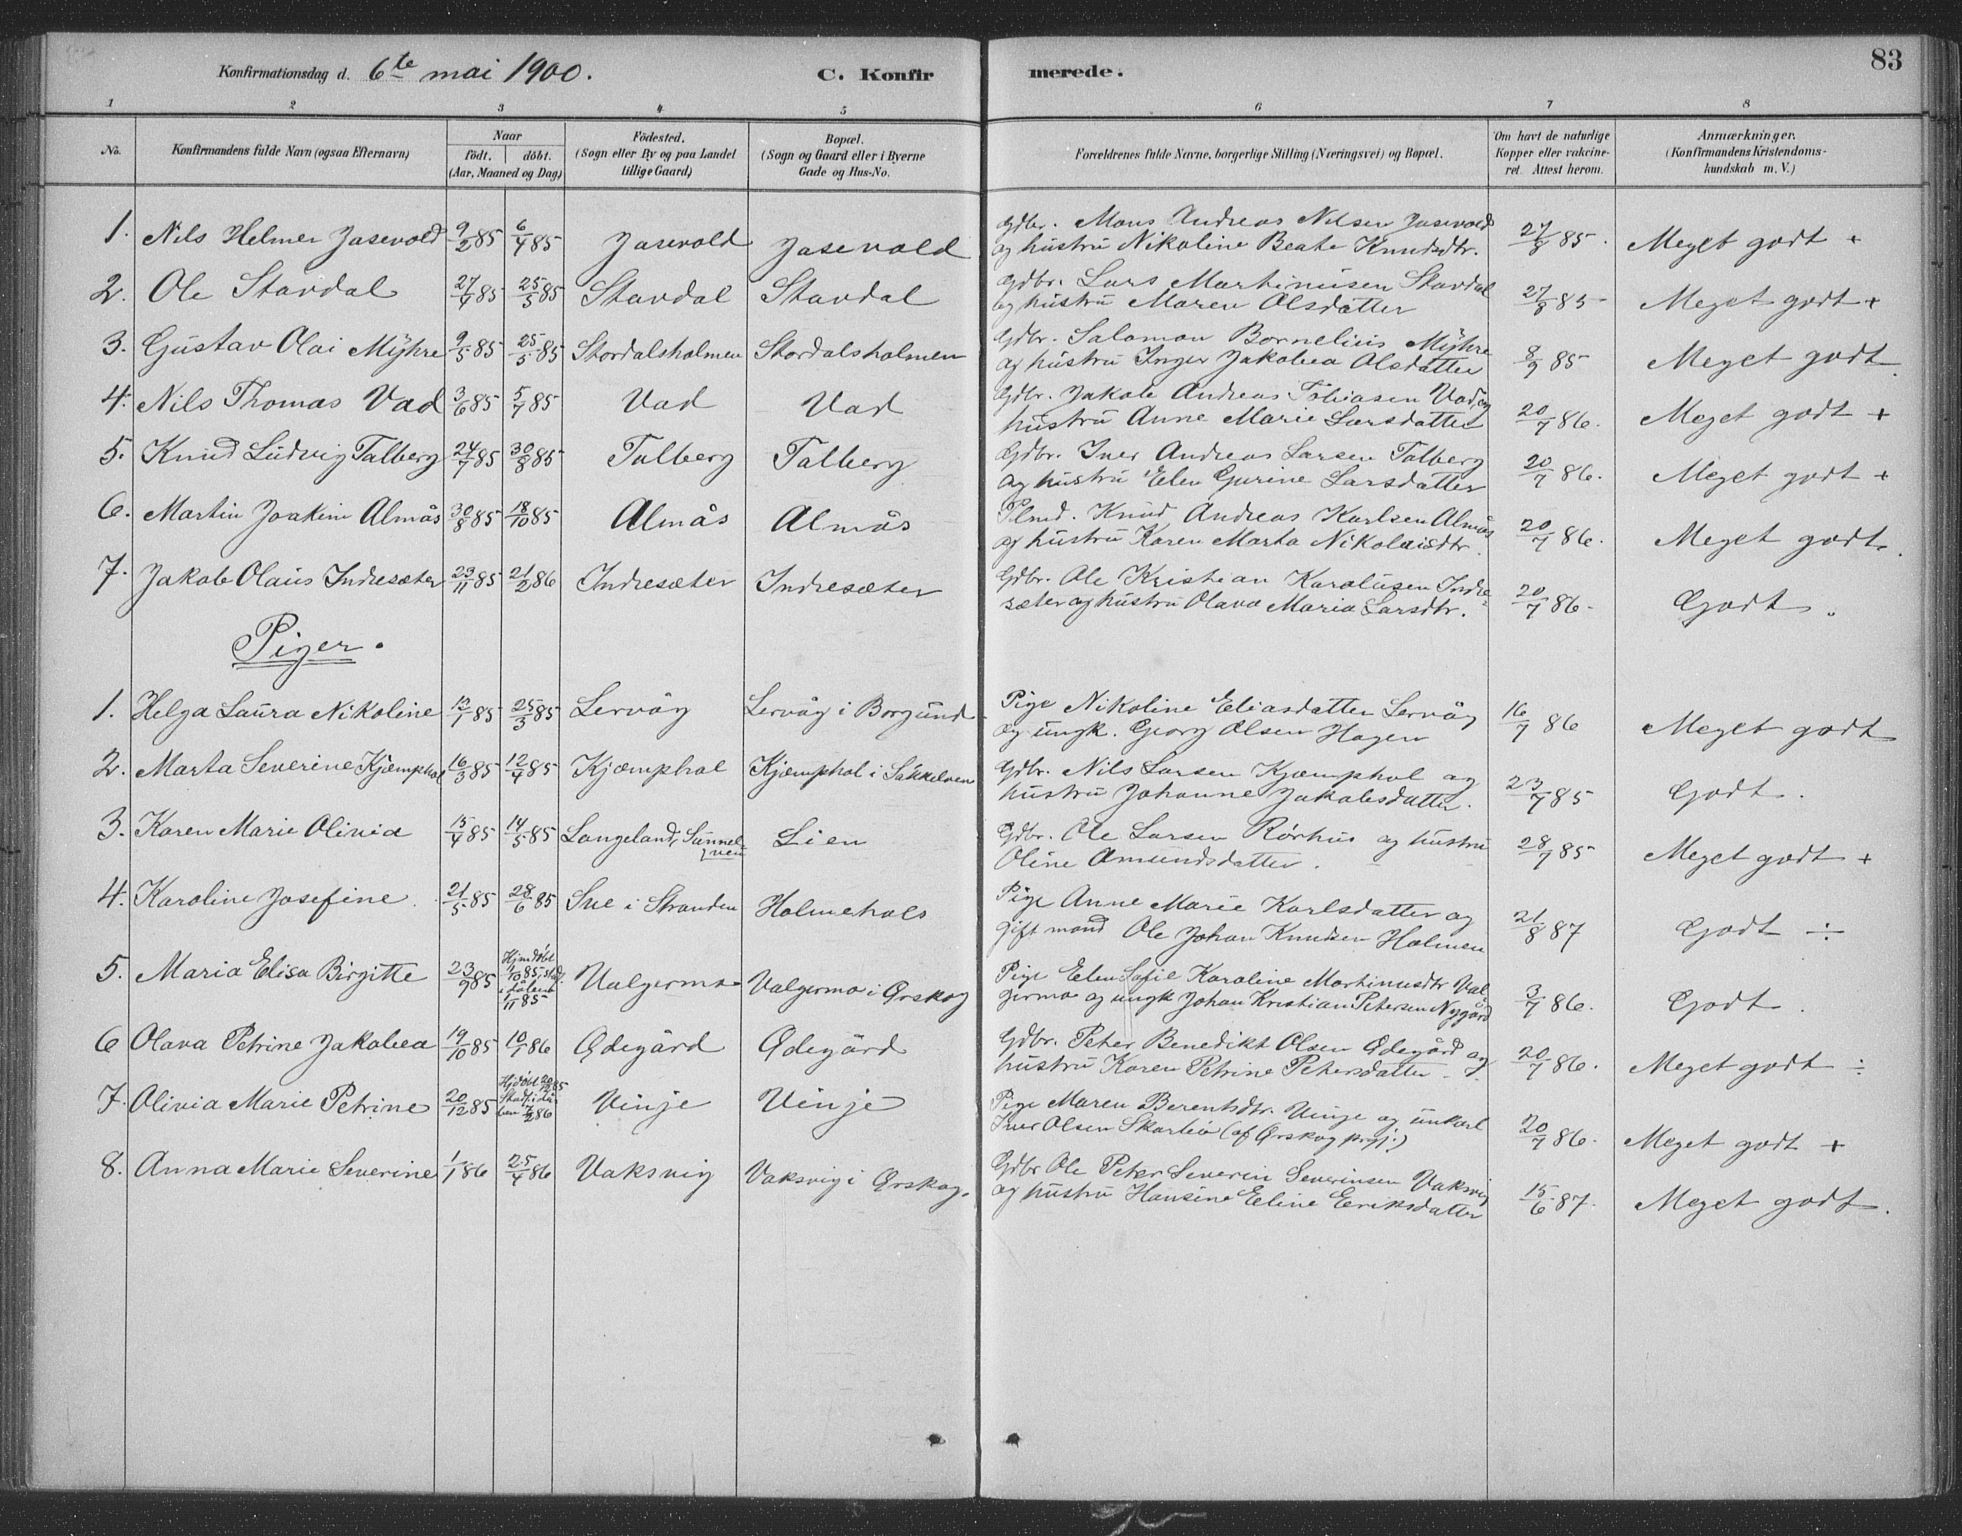 Konfirmationsdag d. 6te mai 1900. C. Konfir merede. 83
1 2 3 4 5 6 7 8
No. Konfirmandens fulde Navn (ogsaa Efternavn) Naar födt, döbt. (Aar, Maaned og Dag) Födested. (Sogn eller By og paa Landet tillige Gaard) Bopæl. (Sogn og Gaard eller i Byerne Gade og Hus-No. Forældrenes fulde Navne, borgerlige Stilling (Næringsvei) og Bopæl. Om havt de naturlige Kopper eller vakcineret. Attest herom. Anmærkninger. (Konfirmandens Kristendomskundskab m. V.)
1. Nils Helmer Jasevold 9/2 85 6/4 85 Jasevold Jasevold Gdbr. Mons Andreas Nilsen Jasevold og hustru Nikoline Beate Knudsdtr. 27/8 85. Meget godt +
2. Ole Stavdal 27/4 85 25/5 85 Stavdal Stavdal Gdbr. Lars Martinusen Stavdal og hustru Maren Olsdatter 27/8 85 Meget godt +
3. Gustav Olai Myhre 9/5 85 25/5 85 Stordalsholmen Stordalsholmen Gdbr. Salamon Bornelius Myhre og hustru Inger Jakobea Olsdatter 8/9 85 Meget godt.
4. Nils Thomas Vad 3/6 85 5/7 85 Vad Vad Gdbr. Jakob Andreas Tobiasen Vad og hustru Anne Marie Larsdatter 20/7 86. Meget godt +
5. Knud Ludvig Talberg 24/7 85 30/8 85 Talberg Talberg Gdbr. Iver Andreas Larsen Talberg og hustru Elen Gurine Larsdatter 20/7 86. Meget godt +
6. Martin Joakim Almås 30/8 85 18/10 85 Almås Almås Plmd. Knud Andreas Karlsen Almås og hustru Karen Marta Nikolaisdtr. 20/7 86. Meget godt.
7. Jakob Olaus Indresæter 23/11 85 21/2 86 Indresæter Indresæter Gdbr. Ole Kristian Karolusen Indresæter og hustru Olava Maria Larsdtr. 20/7 86. Godt.
Piger.
1. Helga Laura Nikoline 13/1 85 25/3 85 Lervåg Lervåg i Borgund. Pige Nikoline Eliasdatter Lervåg og ungk. Georg Olsen Hagen 16/7 86 Meget godt
2. Marta Severine Kjæmphol 16/3 85 12/4 85 Kjæmphol Kjæmphol i Søkkelven Gdbr. Nils Larsen Kjæmphol og hustru Johanne Jakobsdatter. 23/7 85 Godt.
3. Karen Marie Olivia 15/4 85 14/5 85 Langeland, Sunnelven Lien Gdbr. Ole Larsen Rørhus og hustru Oline Amundsdatter. 28/7 85 Meget godt +
4. Karoline Josefine. 21/5 85 28/6 85 Sve i Stranden Holmehols Pige Anne Marie Karlsdatter og gift mand Ole Johan Knudsen Holmen 21/8 87 Godt ÷
5. Maria Elisa Birgitte 23/9 85 Hjmdøbt 1/10 85 Valgermo Valgermo i Ørskog Pige Elen Sofie Karoline Martinusdtr Valgermo og ungk Johan Kristian Petersen Nygård 3/7 86. Godt.
6 Olava Petrine Jakobea 19/10 85 10/1 86 Ødegård Ødegård Gdbr. Peter Benedikt Olsen Ødegård og hustru Karen Petrine Petersdatter 20/7 86. Meget godt ÷
7. Olivia Marie Petrine 20/12 85 Hjdøbt Vinje Vinje Pige Maren Berentsdtr. Vinje og unkarl Iver Olsen Skarbø (af Ørskog prgj.) 20/7 86. Meget godt +
8. Anna Marie Severine 1/1 86 25/4 86 Vaksvig Vaksvig i Ørskog. Gdbr Ole Peter Severin Severinsen Vaksvig og hustru Hansine Eline Eriksdatter 15/6 87. Meget godt.